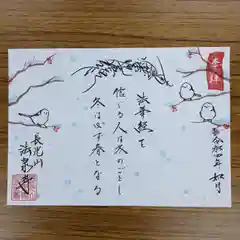 奉拝
令和四年 如月
法華経を
信ずる人は冬のごとし
冬は必ず春となる
長光山
法泉寺